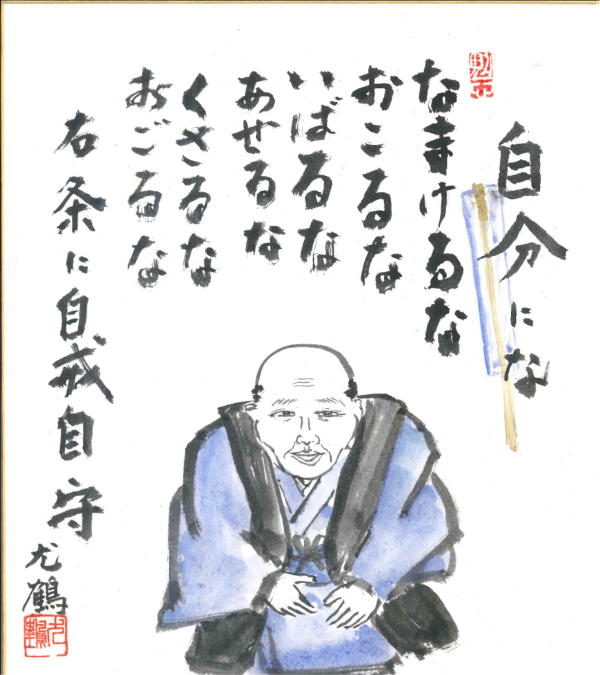 自分にな
なまけるな
おこるな
いばるな
あせるな
くさるな
おごるな
右条に自戒自守
尤鶴